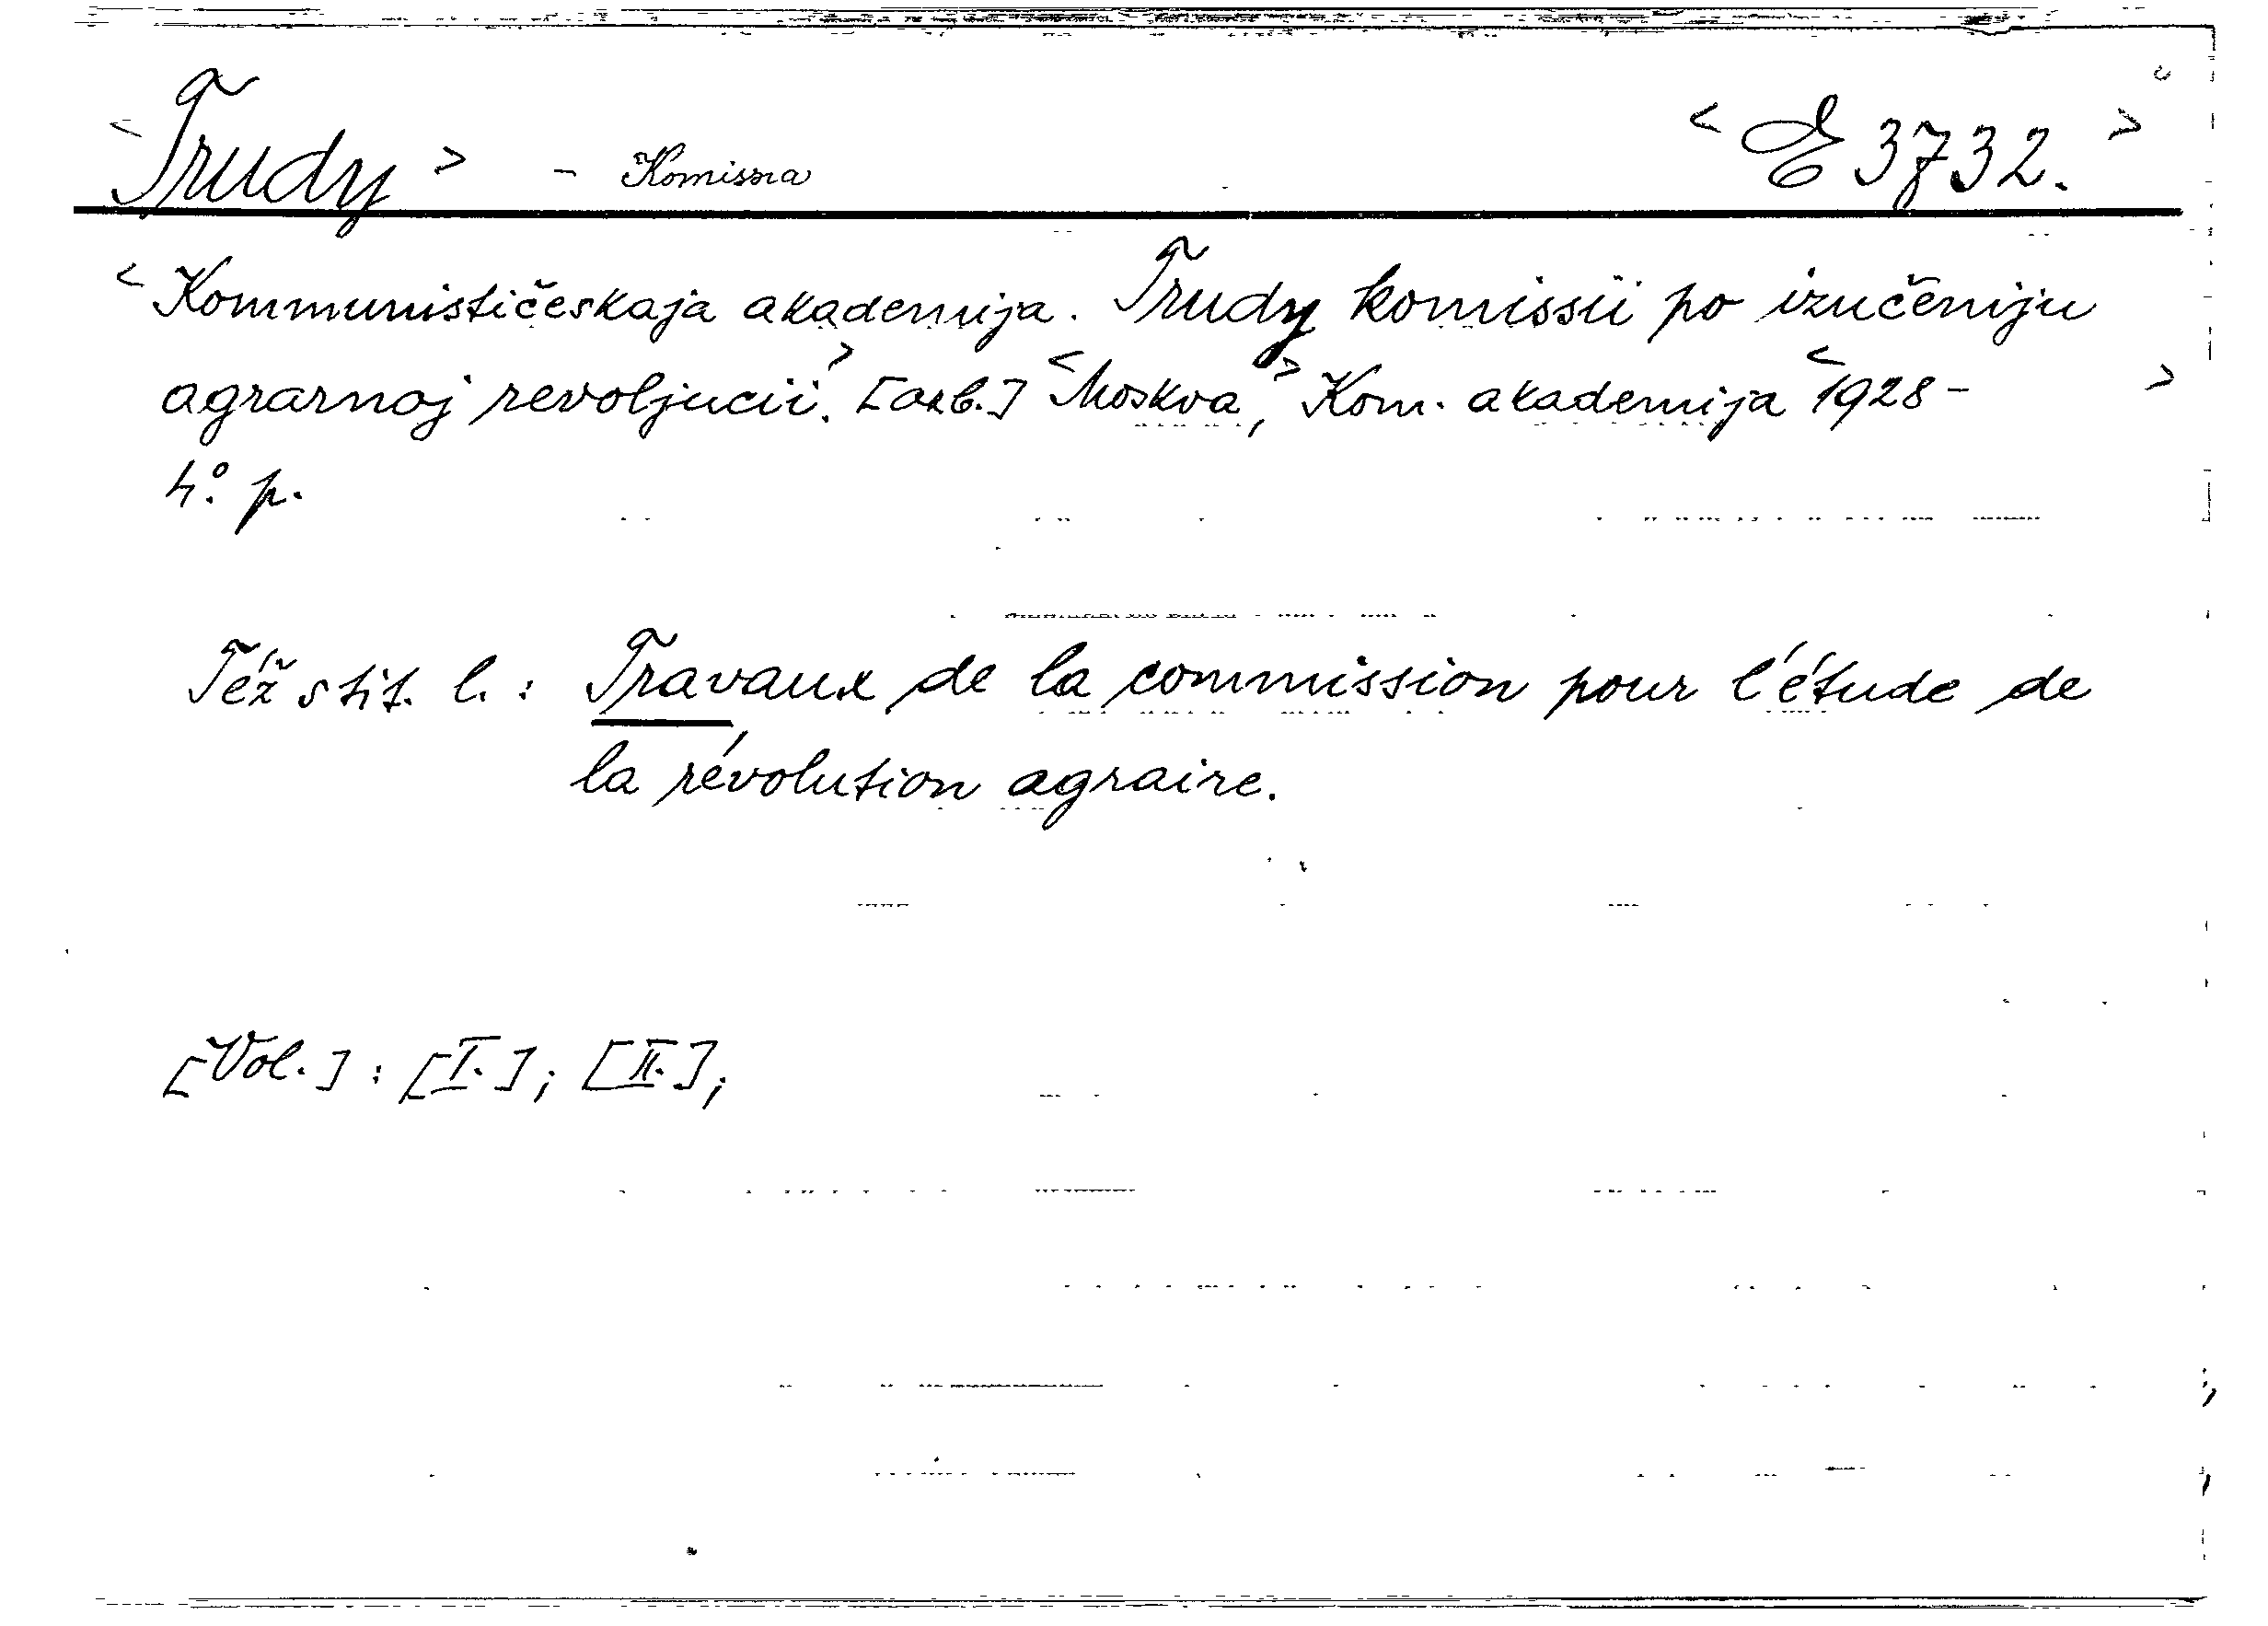 <Trudy> - Komissia <E 3732.>
<Kommunističeskaja akademija. Trudy komissii po izučeniju
agrarnoj revoljucii>. [azb.] <Moskva>, Kom. akademija <1928 - >
4°. p.
Též s tit. l.: Travaux de la commission pour l'étude de
la révolution agraire.
[Vol.]: [I.]; [II.];